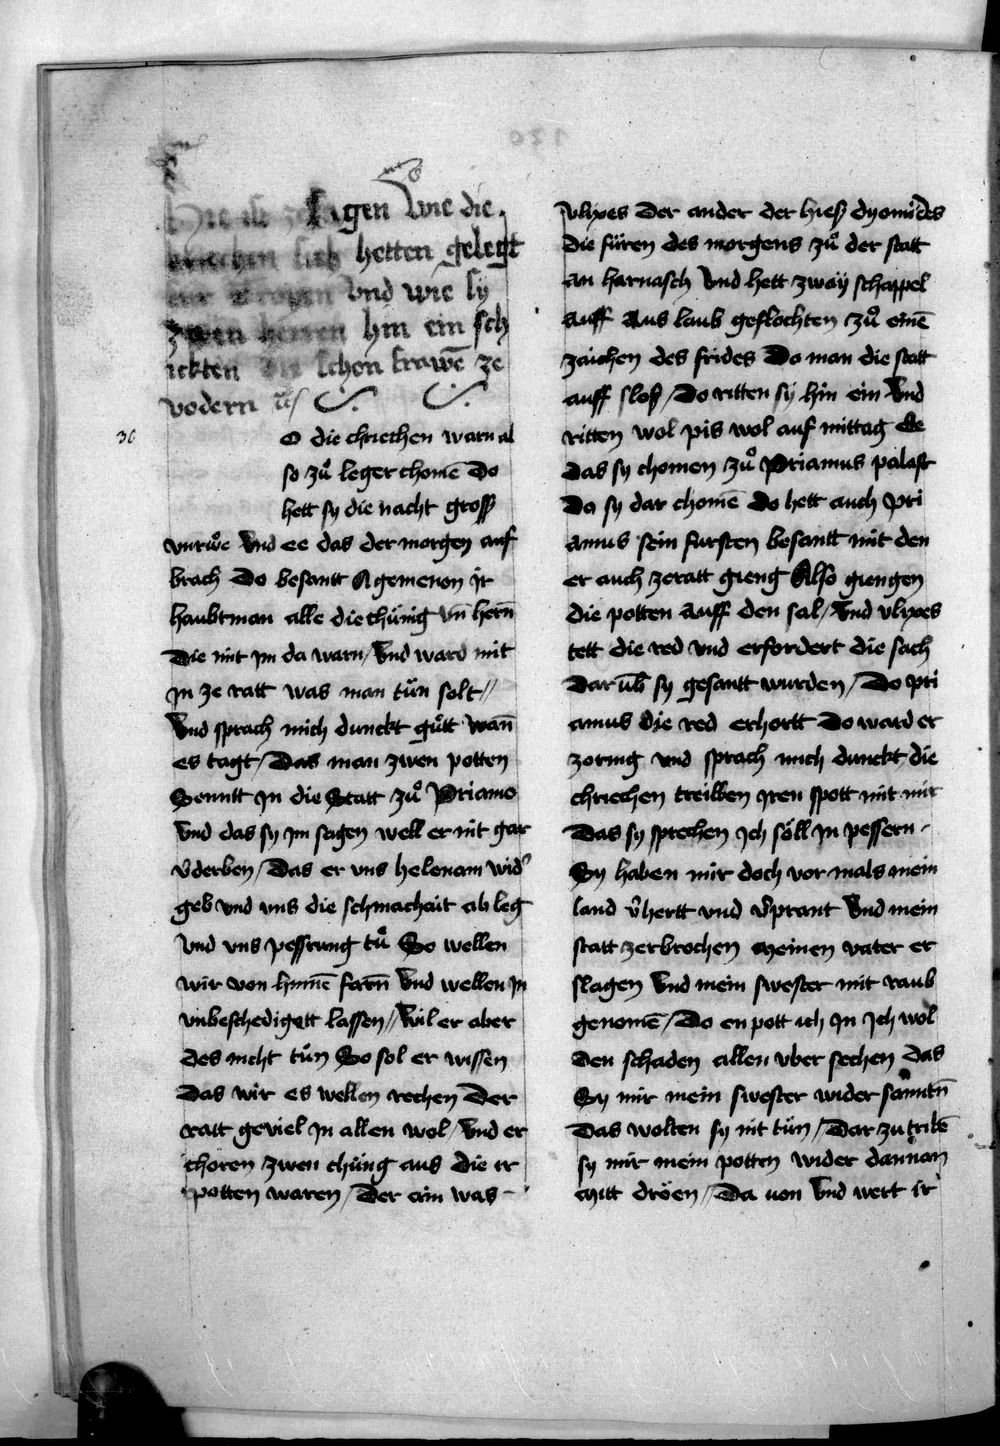 Hie ist ze sagen wie die
kriechen sich hetten gelegt
fur Troyen vnd wie sy
zwen herren hin ein sch
ickten die schon frawē ze
vodern
36
o die chriechen warn al
so zů leger chomē Do
hett sy die nacht gross
vnrwe Vnd ee das der morgen auf
brach Do besantt Agemenon jr
haubtman alle die chünig vn̄ hern̄
Die mit jm da warn / Vnd ward mit
jn ze ratt was man tün solt //
Vnd sprach mich dunckt gütt wan̄
es tagt / Das man zwen potten
Senntt jn die Statt zů Priamo
Vnd das sy jm sagen well er nit gar
v̄derben / Das er vns helenam wid'
geb vnd vns die schmachait ab leg
vnd vns pessrung tů So wellen
wir von hinnē farn̄ Vnd wellen jn
vnbeschedigett lassen // Wil er aber
des nicht tün So sol er wissen
Das wir es wellen rechen Der
ratt geviel jn allen wol / Vnd er
choren zwen chüng aus die ir
potten waren / Der ain was
vlixes Der ander der hiess dyomides
Die füren des morgens zů der statt
an harnasch Vnd hett zway schappel
auff Aus laub geflochten zů einē
zaichen des frides Do man die statt
auff slosß / Do ritten sy hin ein Vnd
ritten wol pis wol auf mittag Ee
das sy chomen zů Priamus palast
Da sy dar chomē do hett auch Pri
amus sein fursten besantt mit den
er auch zeratt gieng Also giengen
die potten auff den sal / Vnd vlixes
tett die red vnd erfordert die sach
Darūb sy gesantt wurden / Do pri
amus die red erhortt Do ward er
zornig vnd sprach mich dunckt die
chriechen treilben iren spott mit mir
Das sy sprechen Ich söll jn pessern
Sy haben mir doch vor mals mein
land v̄hertt vnd v̄prant Vnd mein
statt zerbrochen meinen vater er
slagen Vnd mein swester mit raub
genomē / Do en pott ich jn Ich wol
den schaden allen vber sechen Das
Sy mir mein swester wider santn̄
Das wolten sy nit tün / Dar zu tribē
sy mir mein potten wider dannan
mitt dröen // Da von Vnd wert ir